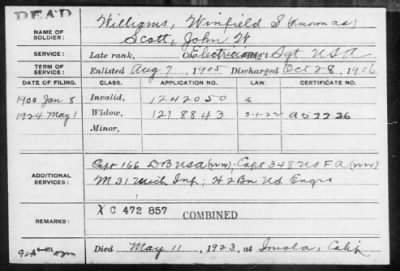 DEAD
NAME OF SOLDIER: Williams, Winfield S (Thomas)
Scott, John W
SERVICE: Late rank, Co. Electrician Sgt USA
TERM OF SERVICE: Enlisted Aug 7, 1905 Discharged Oct 28, 1906
DATE OF FILING. CLASS. APPLICATION NO. LAW. CERTIFICATE NO.
1900 Jan 8 Invalid, 1242050
1924 May 1 Widow, 1218843 3-1-22
Minor,
ADDITIONAL SERVICES: Capt 166 DB USA (WW); Capt 348 US F A (WW)
M 31 Mich Inf; H 2 Bn US Engrs
REMARKS: X C 472 857 COMBINED
Died May 11, 1923, at Imola, Calif